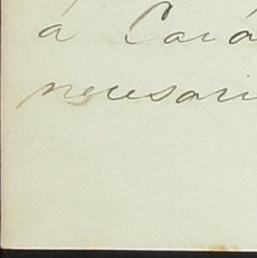 á Cará
necesari